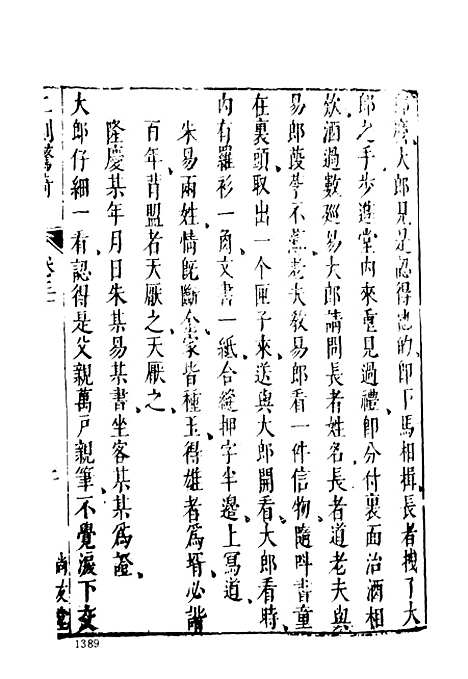 大郎見是認得他的即下馬相揖長者拽了大
郎之手步進堂内來重見過禮即分付裏面治酒相
飲酒過數廵易大郎請問長者姓名長者道老夫與
易郎葭莩不薄老夫教易郎看一件信物隨呌書童
在裏頭取出一个匣子來送與大郎開看大郎看時
内有羅衫一角文書一紙合縫押字半邊上寫道
朱易兩姓情旣斷金家皆種玉得雄者爲壻必諧
百年背盟者天厭之天厭之
隆慶某年月日朱某易某書坐客某某爲證
大郎仔細一看認得是父親萬戶親筆不覺淚下交
二刻驚竒
卷三
尚友堂
1389